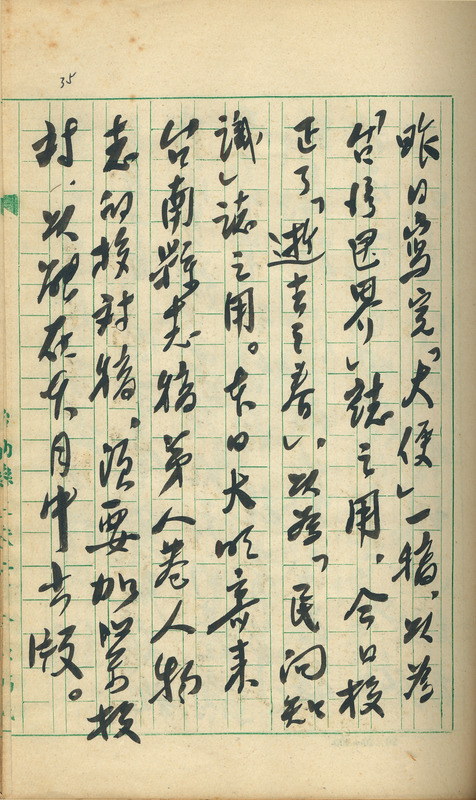 35
昨日寫完「大便」一稿，以為
「台界」誌之用，今日校
正了「逝去之春」，以為「民间知
識」誌之用。本日大明寄来
台南縣志稿第八卷人物
志的校对稿，須要加緊校
対，以能在本月中出版。